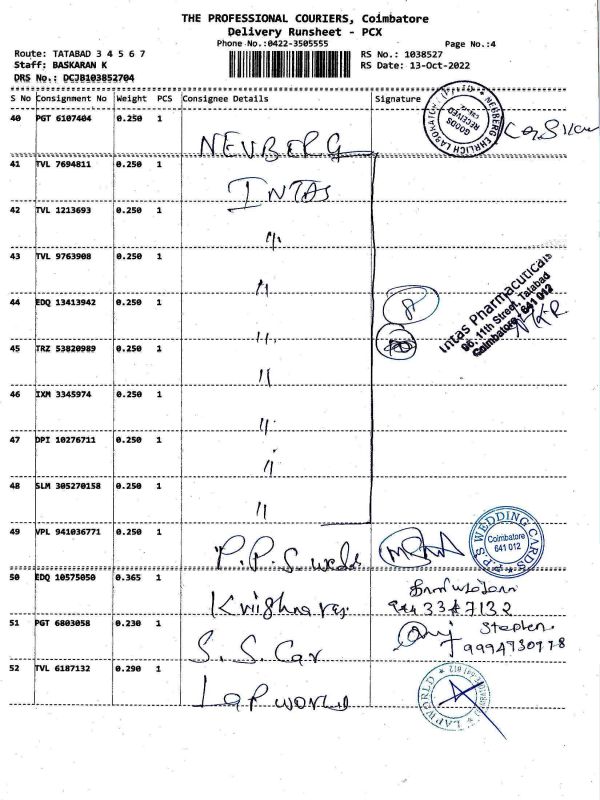 THE PROFESSIONAL COURIERS, Coimbatore
Delivery Runsheet - PCX
Phone No.:0422-3505555
Page No.:4
Route: TATABAD 3 4 5 6 7
RS No.: 1038527
Staff: BASKARAN K
RS Date: 13-Oct-2022
DRS No.: DCJB103852704
S No Consignment No Weight PCS Consignee Details Signature
40 PGT 6107404 0.250 1 NEUBERG
NEUBERG EHRLICH LABORATORY
GOODS
RECEIVED
41 TVL 7694811 0.250 1 INTAS
42 TVL 1213693 0.250 1 〃
43 TVL 9763908 0.250 1 〃
44 EDQ 13413942 0.250 1 〃 8
Intas Pharmaceuticals
96, 11th Street, Tatabad
Coimbatore - 641 012
45 TRZ 53820989 0.250 1 〃
46 IXM 3345974 0.250 1 〃
47 DPI 10276711 0.250 1 〃
48 SLM 305270158 0.250 1 〃
49 VPL 941036771 0.250 1 P.P.S. wedds
P.S WEDDING CARDS
Coimbatore
641 012
50 EDQ 10575050 0.365 1 Krishnaraj
51 PGT 6803058 0.230 1 S.S. Car Stephen
9994730778
52 TVL 6187132 0.290 1 Lap world
LAP WORLD